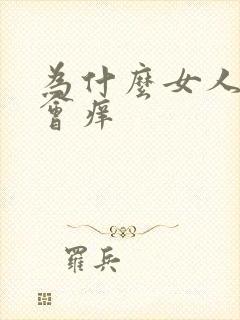 為什麼女人
會痒
羅兵